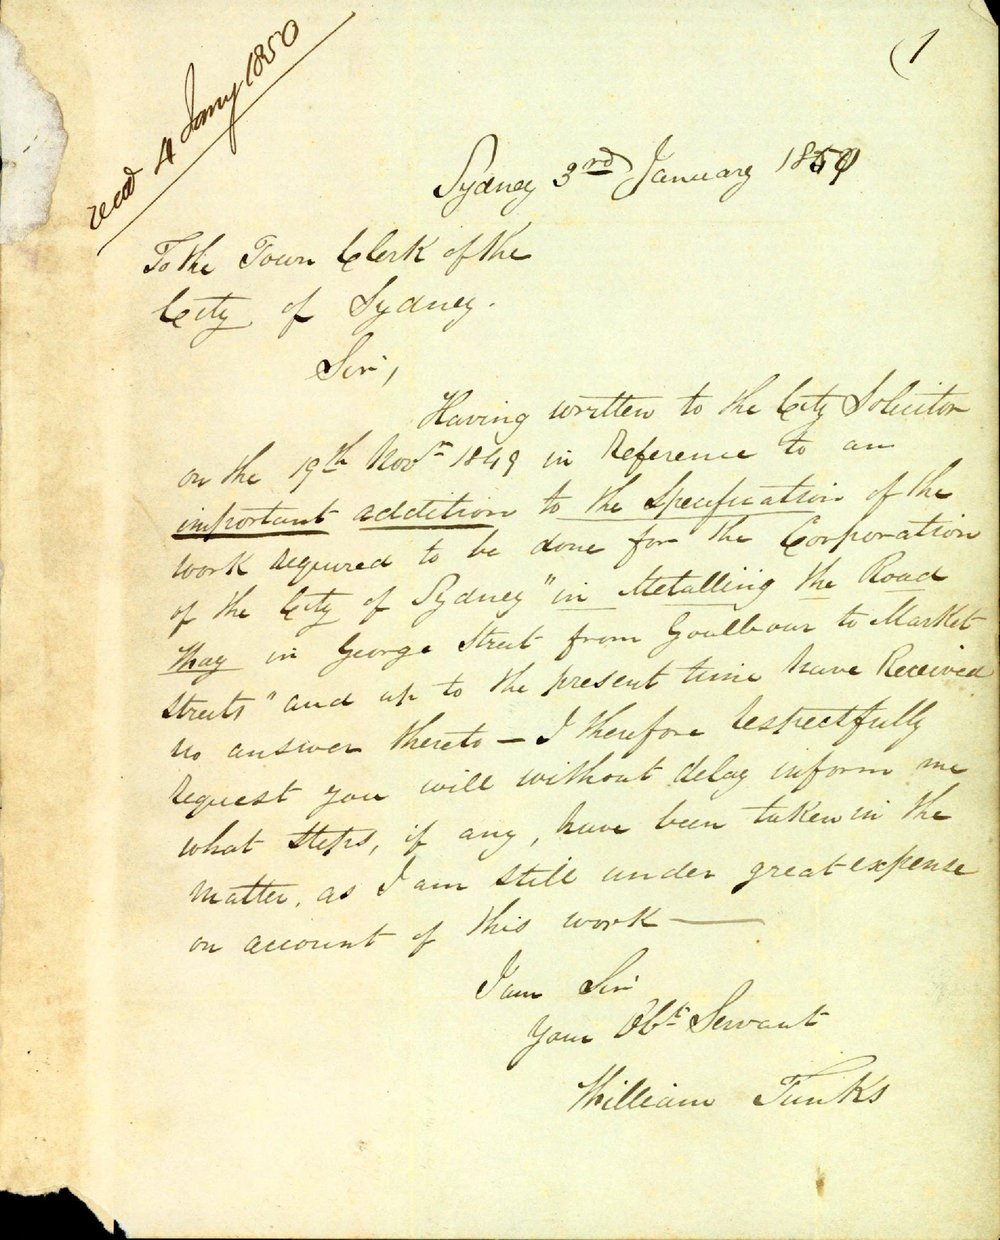 (1
recd 4 Jany 1850
Sydney 3rd January 1850
To the Town Clerk of the
City of Sydney.
Sir,
Having written to the City Solicitor
on the 19th Novr 1849 in Reference to an
important addition to the Specification of the
work required to be done for the Corporation
of the City of Sydney "in Metalling the Road
Way in George Street from Goulbour to Market
Streets" and up to the present time have Received
no answer thereto — I therefore respectfully
Request you will without delay inform me
what steps, if any, have been taken in the
matter, as I am still under great expense
on account of this work —
I am Sir
Your Obt Servant
William Tunks